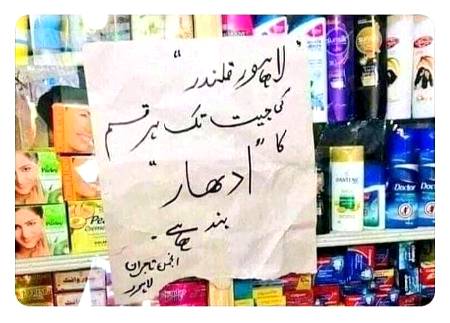 "لاہور قلندر"
کی جیت تک ہر قسم
کا "ادھار"
بند ہے۔
انجمن تاجران
لاہور
PANTENE
Doctor
Doctor